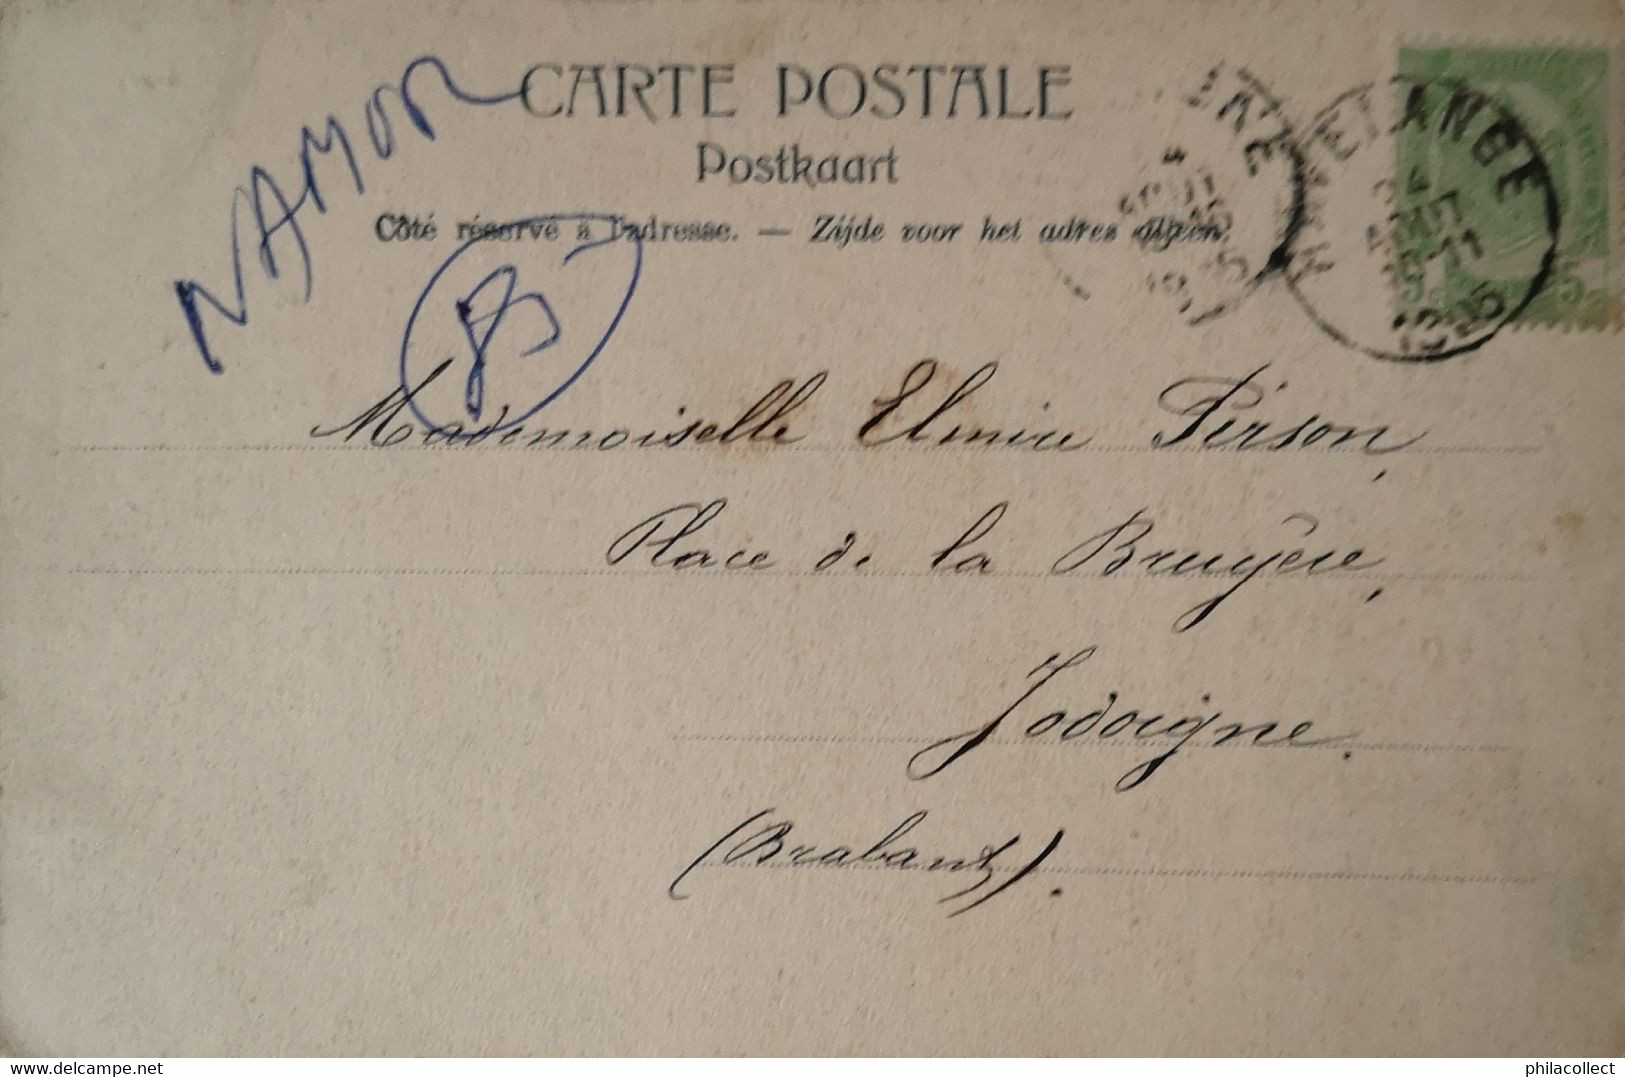 NAMUR
CARTE POSTALE
Postkaart
Côté réservé à l'adresse. — Zijde voor het adres alleen.
Mademoiselle Elmire Pirson,
Place de la Bruyère,
Jodoigne.
(Brabant).
5
delcampe.net
philacollect